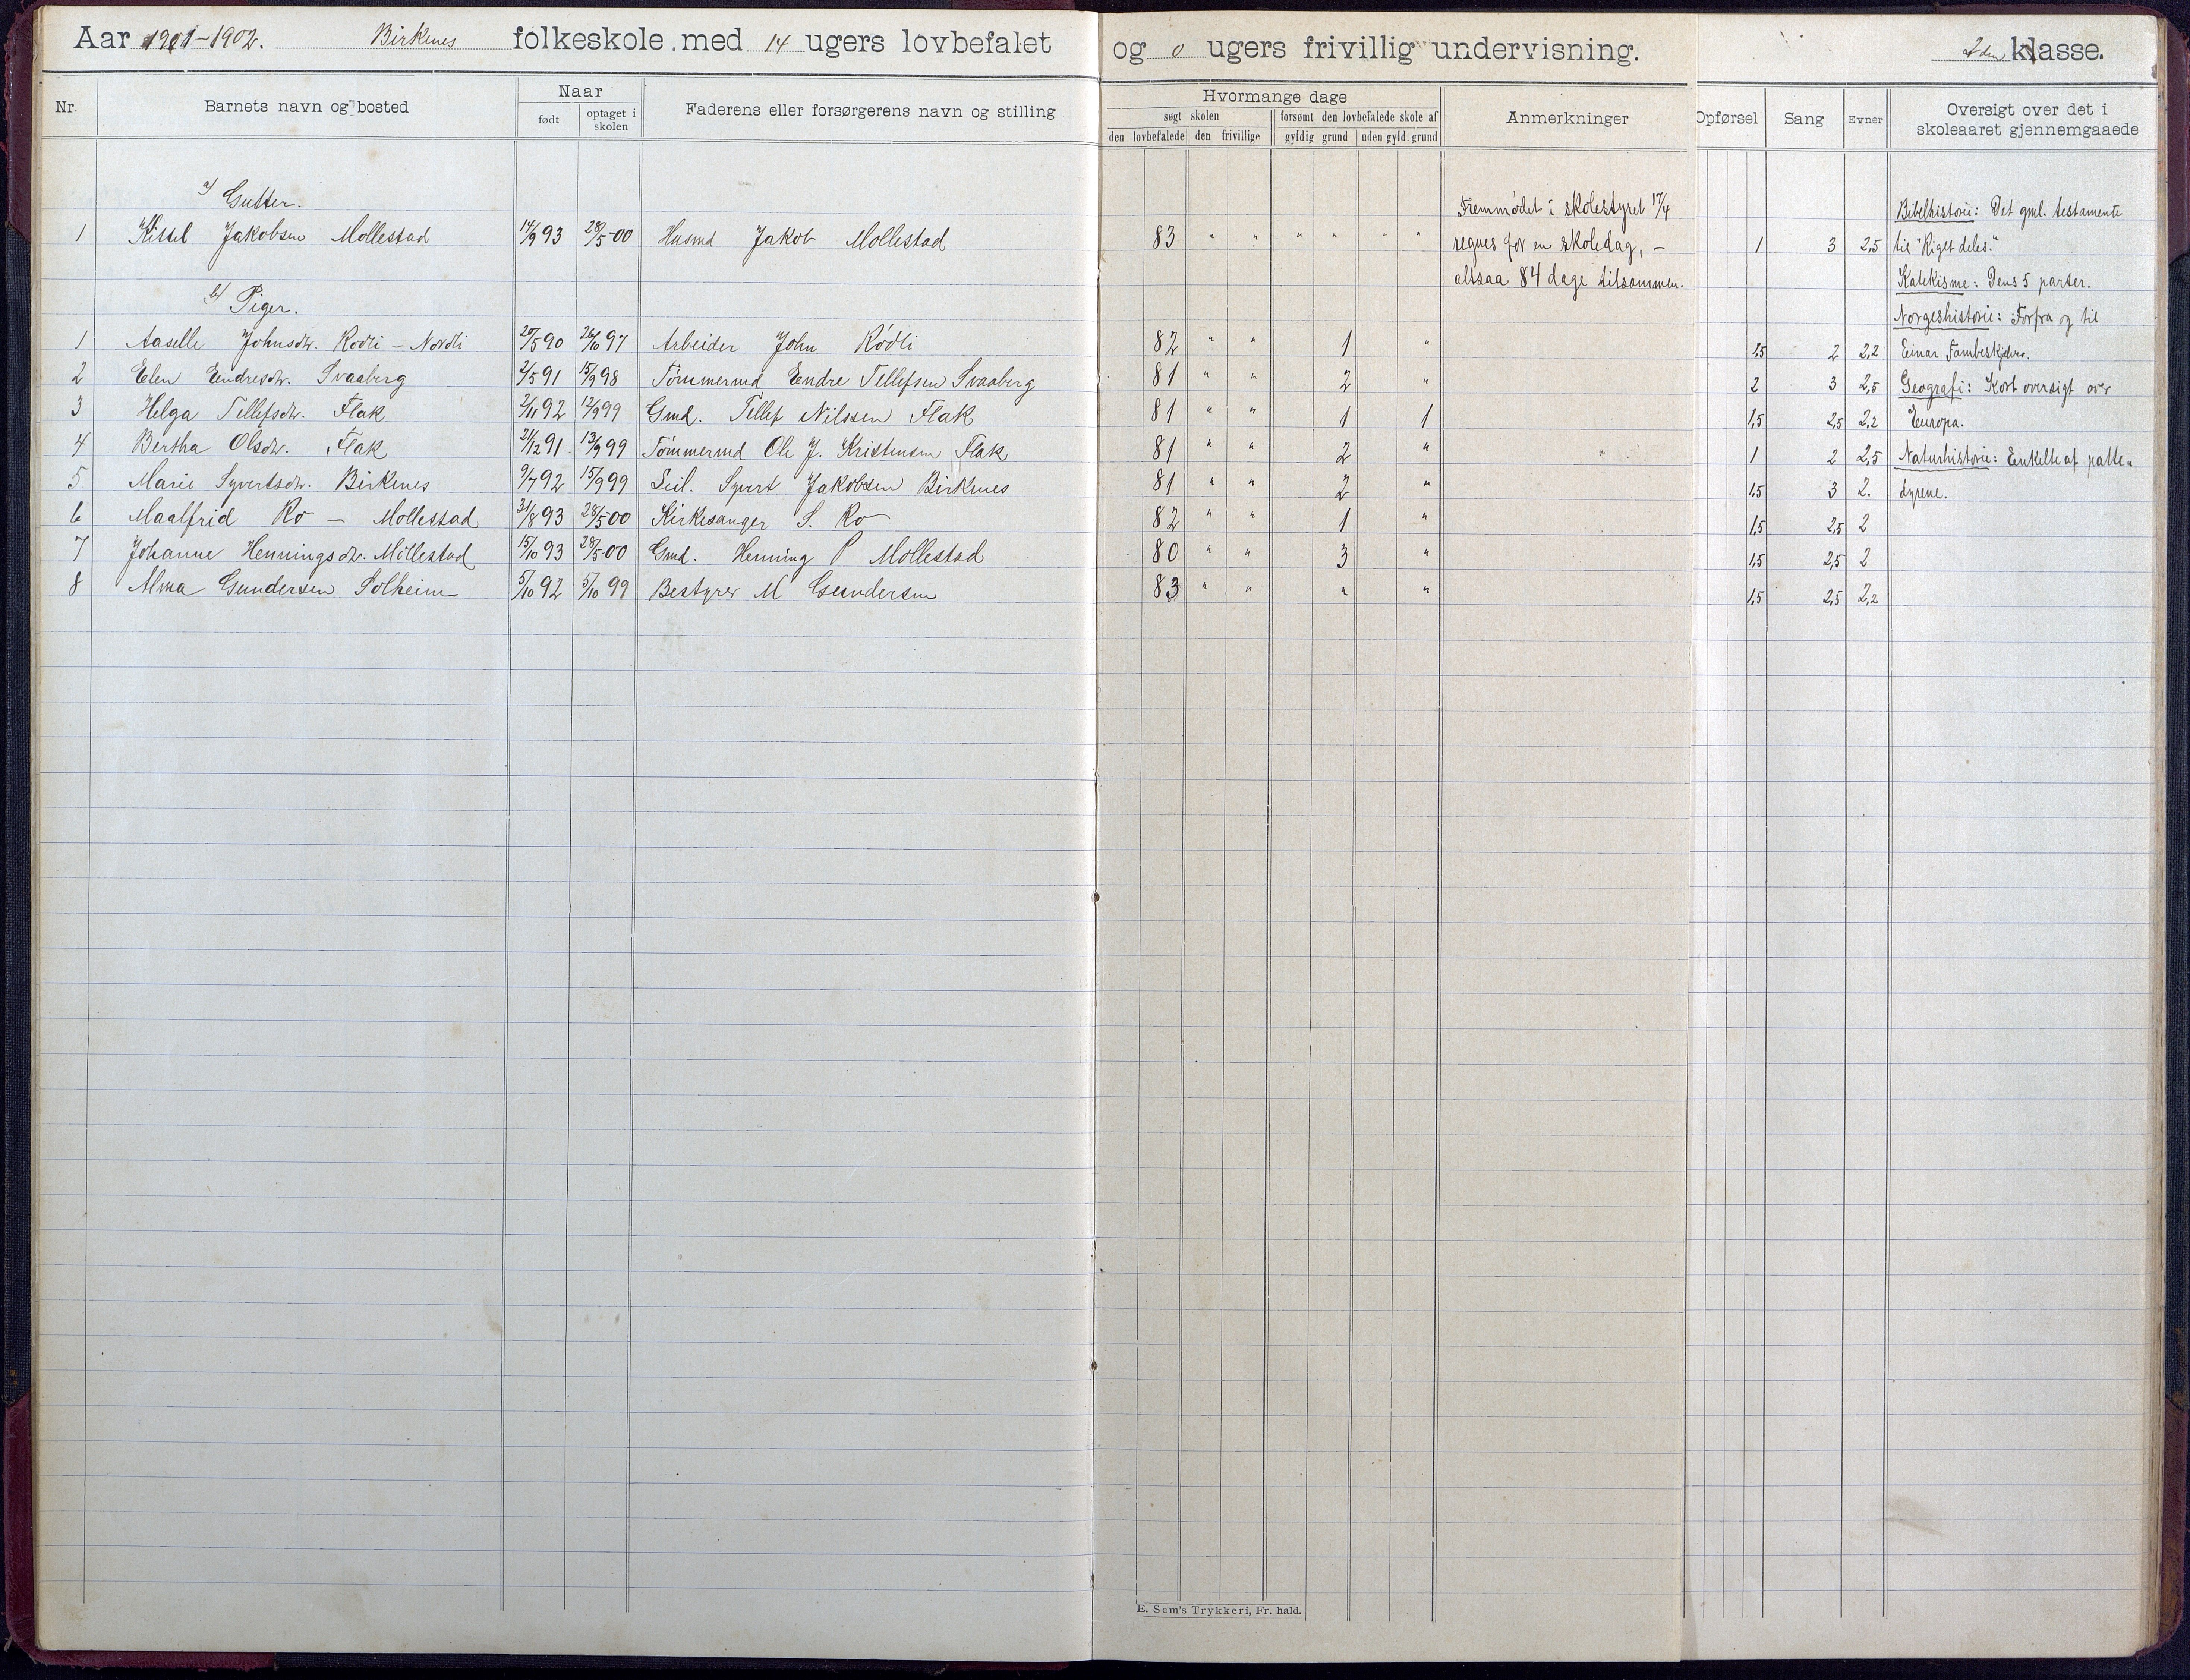 Aar 1901-1902. Birkenes folkeskole med 14 ugers lovbefalet og 0 ugers frivillig undervisning. 2den klasse.
Nr. Barnets navn og bosted Naar født optaget i skolen Faderens eller forsørgerens navn og stilling Hvormange dage søgt skolen den lovbefalede den frivillige forsømt den lovbefalede skole af gyldig grund uden gyld. grund Anmerkninger Opførsel Sang Evner Oversigt over det i skoleaaret gjennemgaaede
a) Gutter. Fremmødet i skolestyret 17/4 Bibelhistorie: Det gml. testamente
1 Kittel Jakobsen Mollestad 14/9 93 28/5 00 Husmd Jakob Mollestad 83 " " " " " " regnes for en skoledag, – 1 3 2,5 til "Riget deles."
altsaa 84 dage tilsammen. Katekisme: Dens 5 parter.
b) Piger. Norgeshistorie: Forfra og til
1 Aaselle Johnsdtr. Rødli – Nordli 20/5 90 26/10 97 Arbeider John Rødli 82 " " 1 " 1,5 2 2,2 Einar Tambeskjelve.
2 Elen Endresdtr. Svaaberg 2/5 91 15/9 98 Tømmermd Endre Tellefsen Svaaberg 81 " " 2 " 2 3 2,5 Geografi: Kort oversigt over
3 Helga Tellefsdtr. Flak 2/11 92 12/9 99 Gmd. Tellef Nilssen Flak 81 " " 1 1 1,5 2,5 2,2 Europa.
4 Bertha Olsdtr. Flak 21/12 91 13/9 99 Tømmermd Ole J. Kristensen Flak 81 " " 2 " 1 2 2,5 Naturhistorie: Enkelte af patte-
5 Marie Syvertsdtr. Birkenes 9/7 92 15/9 99 Leil. Syvert Jakobsen Birkenes 81 " " 2 " 1,5 3 2. dyrene.
6 Maalfrid Ro – Mollestad 31/8 93 28/5 00 Kirkesanger S. Ro 82 " " 1 " 1,5 2,5 2
7 Johanne Henningsdtr. Mollestad 15/10 93 28/5 00 Gmd. Henning P Mollestad 80 " " 3 " 1,5 2,5 2
8 Alma Gundersen Solheim 5/10 92 5/10 99 Bestyrer M Gundersen 83 " " " " 1,5 2,5 2,2
E. Sem's Trykkeri, Fr. hald.